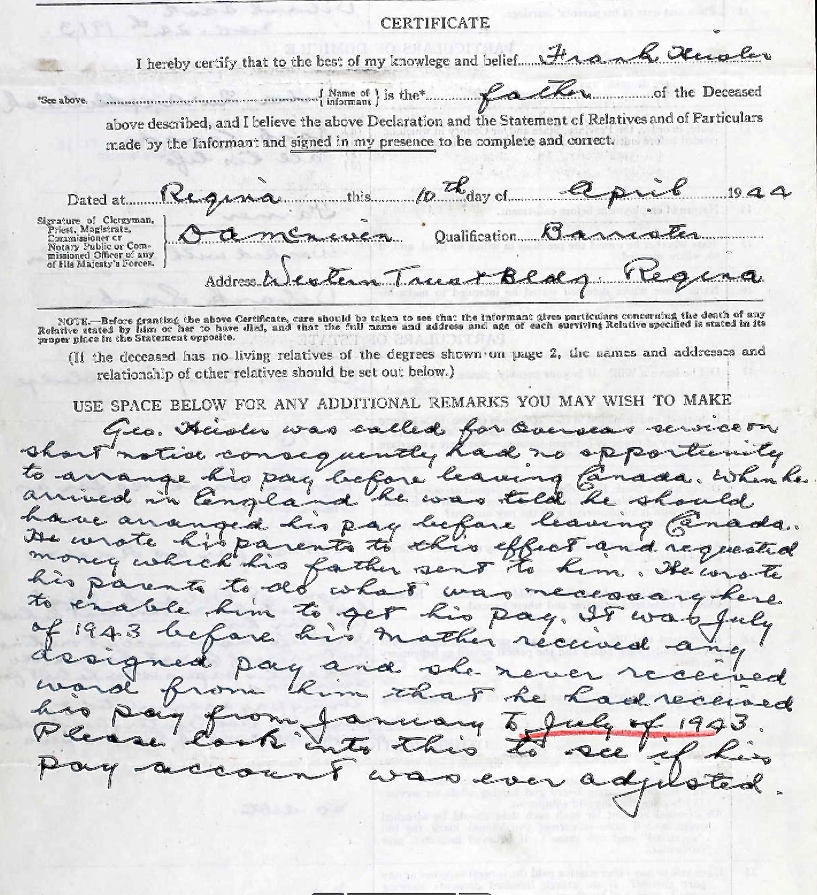 CERTIFICATE
I hereby certify that to the best of my knowlege and belief Frank Heisler
*See above. { Name of informant } is the* father of the Deceased
above described, and I believe the above Declaration and the Statement of Relatives and of Particulars
made by the Informant and signed in my presence to be complete and correct.
Dated at Regina this 10th day of April 1944
Signature of Clergyman,
Priest, Magistrate,
Commissioner or
Notary Public or Com-
missioned Officer of any
of His Majesty's Forces.
D A McNiven Qualification Barrister
Address Western Trust Bldg. Regina
NOTE.—Before granting the above Certificate, care should be taken to see that the informant gives particulars concerning the death of any
Relative stated by him or her to have died, and that the full name and address and age of each surviving Relative specified is stated in its
proper place in the Statement opposite.
(If the deceased has no living relatives of the degrees shown on page 2, the names and addresses and
relationship of other relatives should be set out below.)
USE SPACE BELOW FOR ANY ADDITIONAL REMARKS YOU MAY WISH TO MAKE
Geo. Heisler was called for overseas service on
short notice consequently had no opportunity
to arrange his pay before leaving Canada. When he
arrived in England he was told he should
have arranged his pay before leaving Canada.
He wrote his parents to this effect and requested
money which his father sent to him. He wrote
his parents to do what was necessary here
to enable him to get his pay. It was July
of 1943 before his mother received any
assigned pay and she never received
word from him that he had received
his pay from January to July of 1943.
Please look into this to see if his
pay account was ever adjusted.